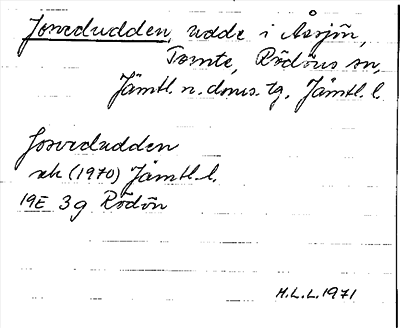 Josvedudden, udde i Åssjön,
Tomte, Rödöns sn,
Jämtl. n. doms. tg, Jämtl. l.
Josvedudden
ek (1970) Jämtl. l.
19E 3g Rödön
H.L.L. 1971